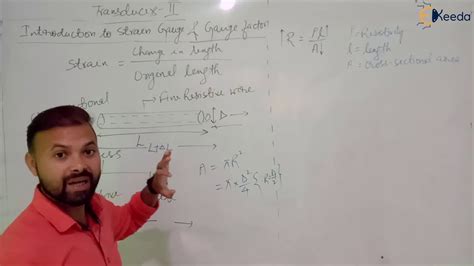 Transducer-II
Introduction to Strain Gauge { Gauge factor
Strain = Change in length
Original length
Fine Resistive wire
L
L+Δ
D
A = πR²
= π × D²/4 { R = D/2 }
↑ R = ρl↑ / A↓
ρ = Resistivity
l = length
A = cross-sectional area
Keeda